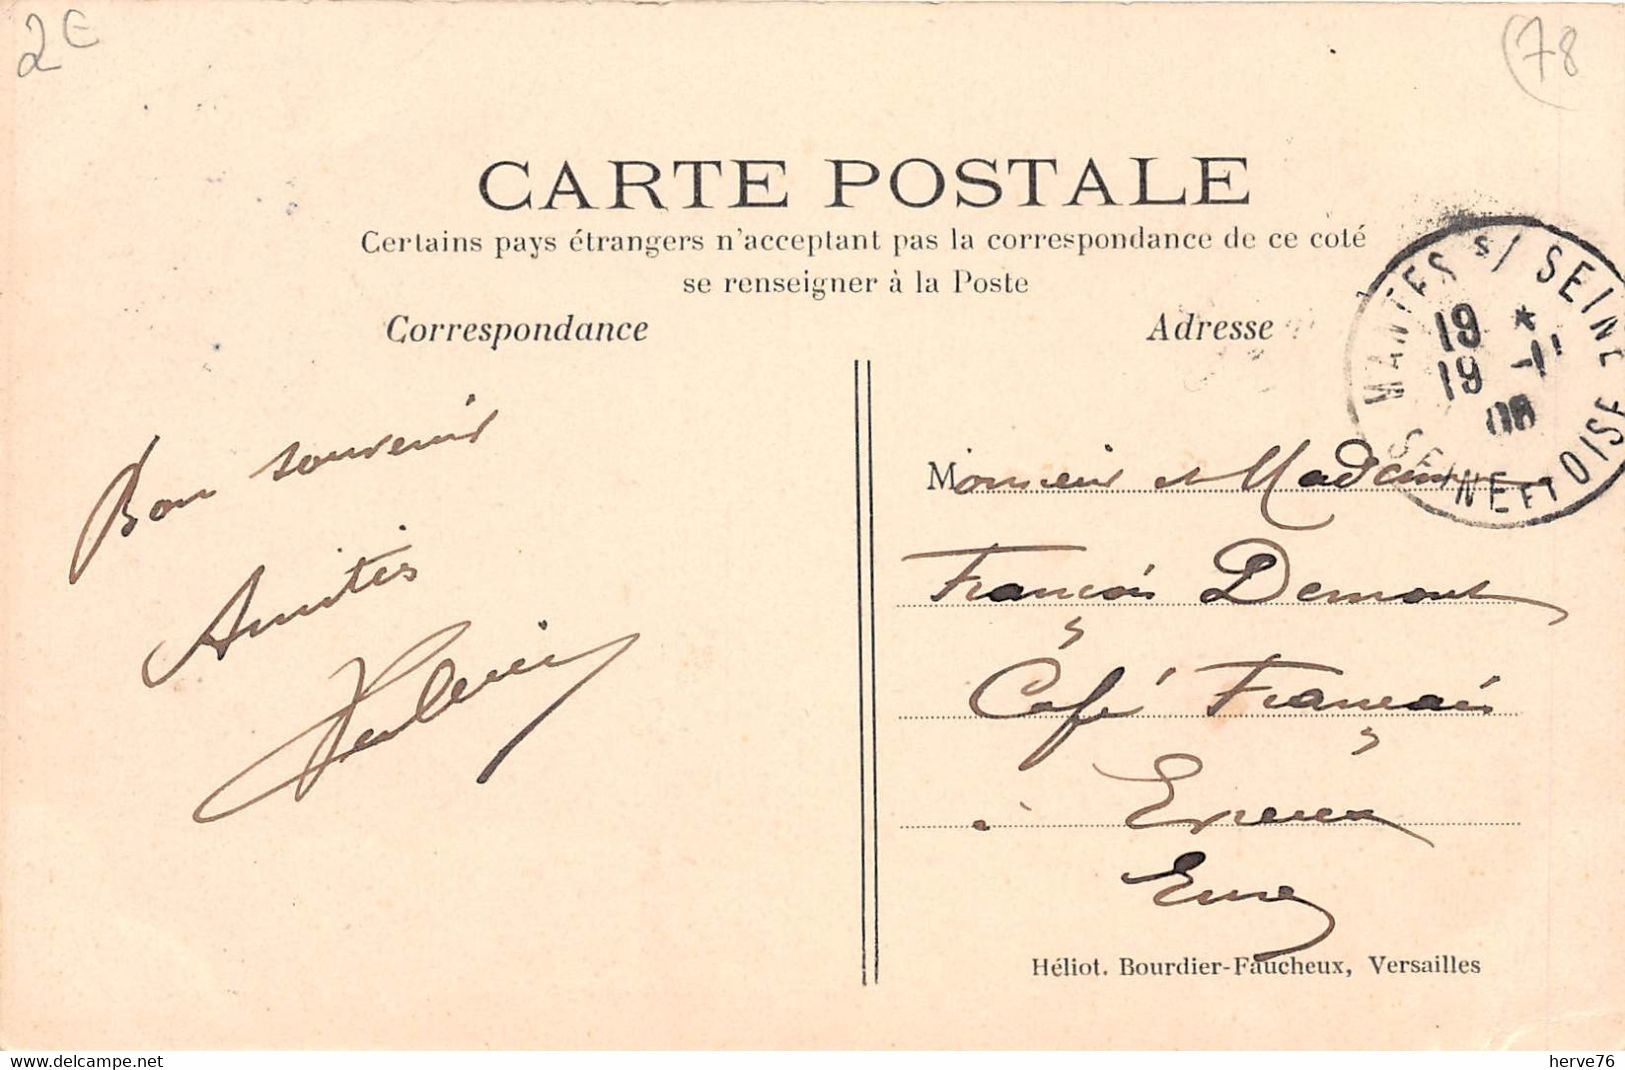 2€
(78
CARTE POSTALE
Certains pays étrangers n'acceptant pas la correspondance de ce coté
se renseigner à la Poste
Correspondance
Adresse
MANTES s/ SEINE
19 *
19 -11
08
SEINE ET OISE
Bon souvenir
Amitiés
Monsieur et Madame
François Demont
Café Français
à Evreux
Eure
Héliot. Bourdier-Faucheux, Versailles
www.delcampe.net
herve76